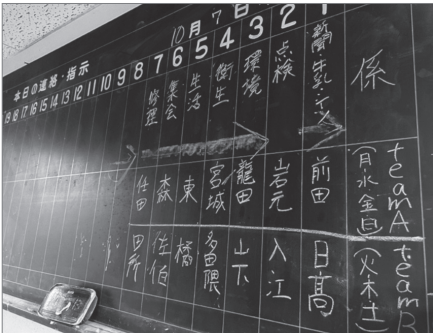 10月7日
本日の連絡・指示
係 teamA (月水金日) teamB (火木土)
1 新聞 牛乳 前田 日高
2 点検 岩元 入江
3 環境 龍田 山下
4 衛生 宮城 多田隈
5 生活 東 橘
6 集会 森 佐伯
7 修理 任田 田所
8
9
10
11
12
13
14
15
16
17
18
19